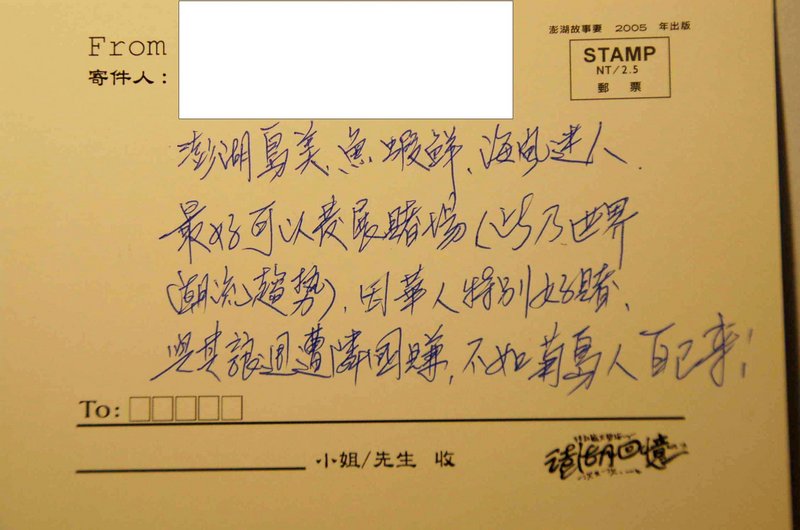 澎湖故事妻 2005 年出版
From
寄件人：
STAMP
NT/2.5
郵 票
澎湖島美、魚蝦鮮、海風迷人、
最好可以發展賭場(此乃世界
潮流趨勢)，因華人特別好賭，
與其讓周遭隣國賺，不如菊島人自己來！
To:
小姐/先生 收
澎湖回憶